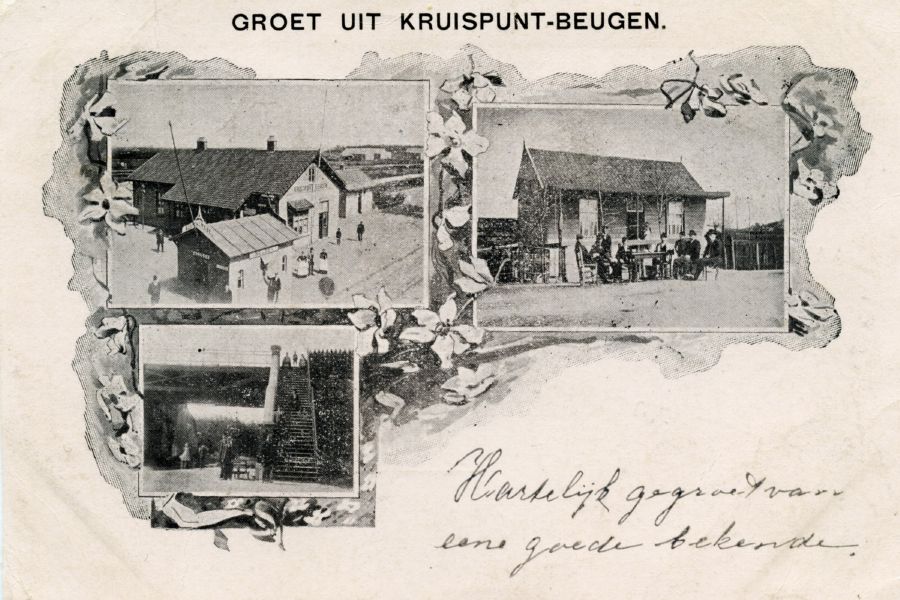 GROET UIT KRUISPUNT-BEUGEN.
Hartelijk gegroet van
eene goede bekende.